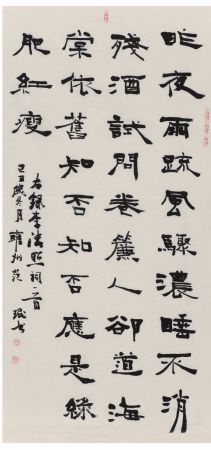 昨夜雨疏風驟濃睡不消
殘酒試問卷簾人卻道海
棠依舊知否知否應是綠
肥紅瘦
右錄李清照詞一首
己丑歲冬月雍州范書